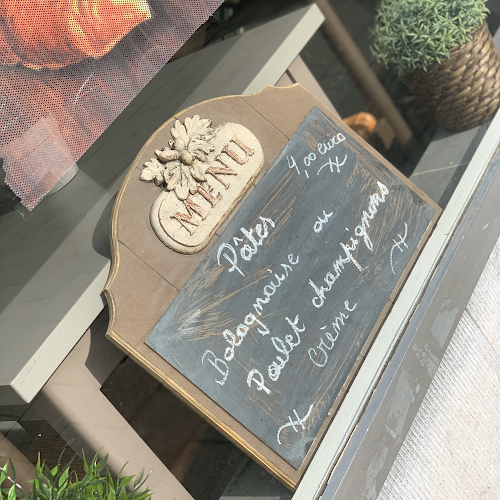 MENU
4,00 euro
Pâtes
Bolognaise ou
Poulet champignons
Crème